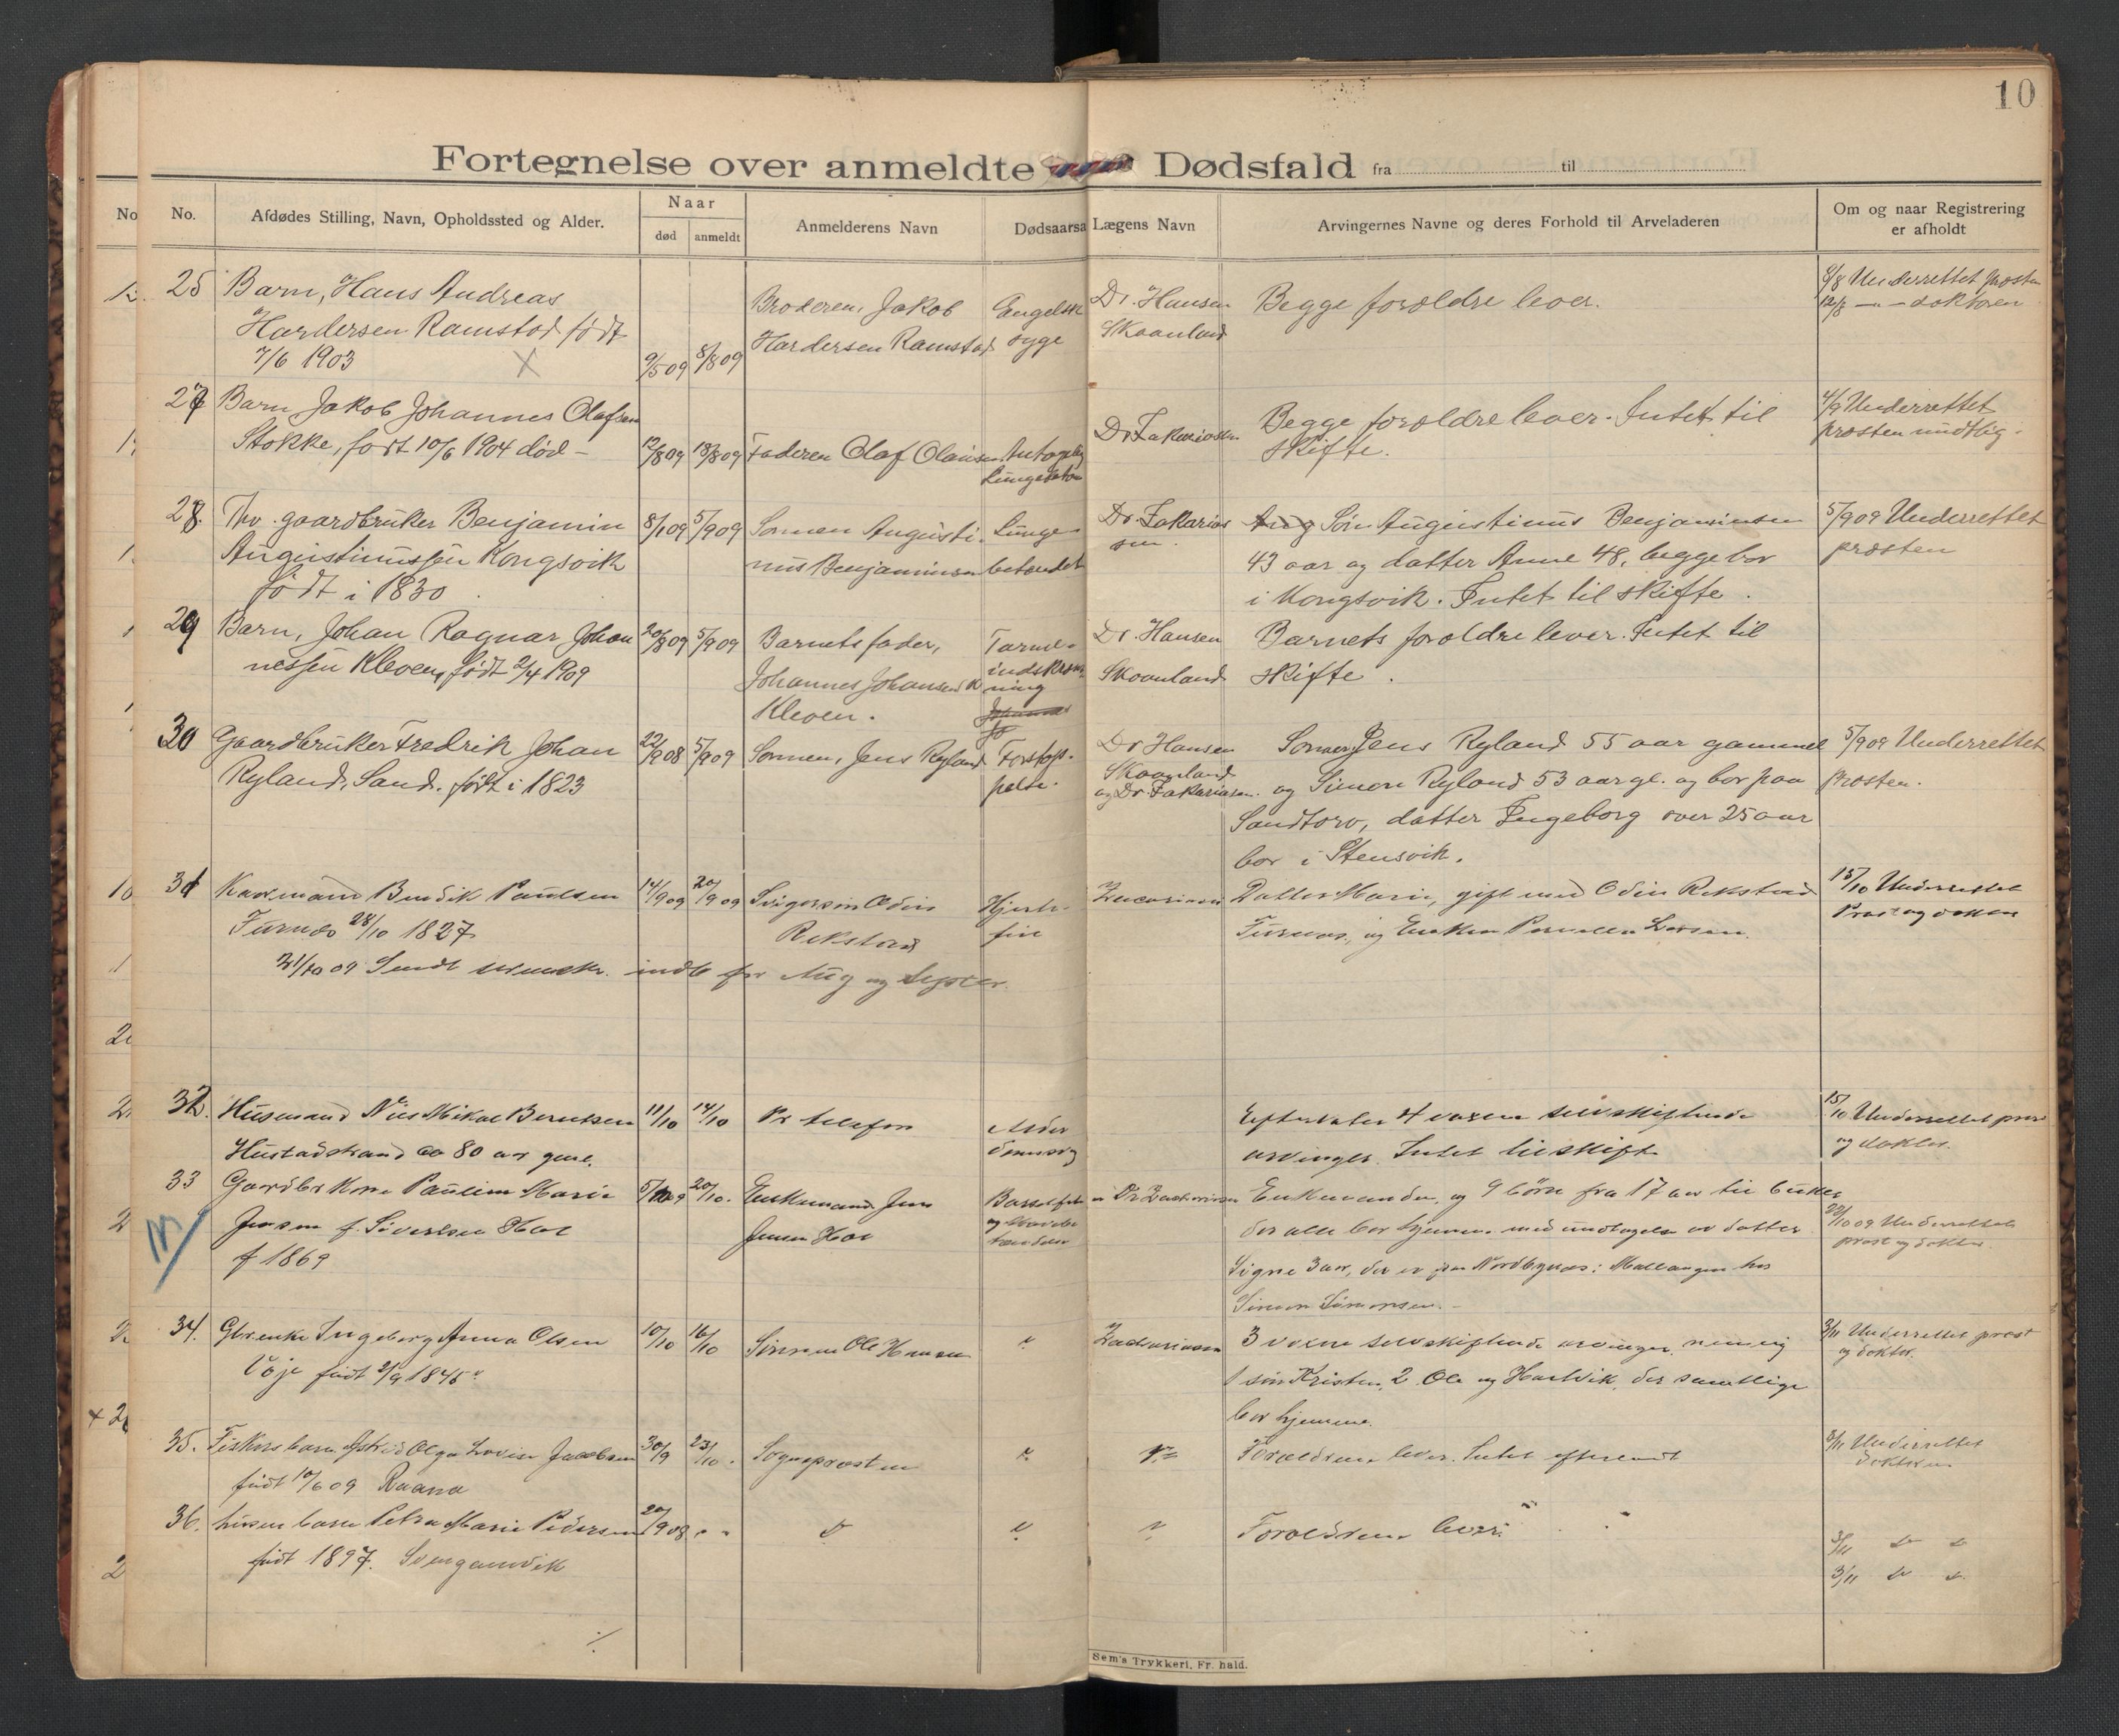 10
Fortegnelse over anmeldte Dødsfald fra til
No. Afdødes Stilling, Navn, Opholdssted og Alder. Naar død anmeldt Anmelderens Navn Dødsaarsa Lægens Navn Arvingernes Navne og deres Forhold til Arveladeren Om og naar Registrering er afholdt
25 Barn, Hans Andreas
Hardersen Ramstad født
7/6 1903
9/5 09 8/8 09
Broderen, Jakob
Hardersen Ramstad
Engelsk
syge
Dr. Hansen
Skaanland
Begge forældre lever.
8/8 Underrettet prosten
12/8 — " — doktoren
27 Barn Jakob Johannes Olafsen
Stokke, født 10/6 1904 død –
12/8 09 13/8 09 Faderen Olaf Olausen
Dr Zakariasen
Begge forældre lever. Intet til
skifte.
4/9 Underrettet
prosten mundtlig.
28. Fhv. gaardbruker Benjamin
Augustinussen Kongsvik
født i 1830
8/1 09 5/9 09 Sønnen Augusti-
nus Benjaminsen
Lunge-
betændel
Dr. Zakarias
sen.
Søn Augustinus Benjaminsen
43 aar og datter Anne 48, begge bor
i Kongsvik. Intet til skifte.
5/9 09 Underrettet
prosten
29 Barn, Johan Ragnar Johan
nessen Kleven, født 2/4 1909
20/8 09 5/9 09 Barnets fader,
Johannes Johansen
Kleven.
Tarm-
ning
Dr. Hansen
Skaanland
Barnets forældre lever. Intet til
skifte.
30 Gaardbruker Fredrik Johan
Ryland, Sand. født i 1823
22/9 08 5/9 09 Sønnen, Jens Ryland
Forstop-
pelse.
Dr Hansen
Skaanland
og Dr Zakariasen.
Sønner Jens Ryland 55 aar gammel
og Simon Ryland 53 aar gl. og bor paa
Sandtorv, datter Ingeborg over 25 aar
bor i Stensvik.
5/9 09 Underrettet
prosten.
31 Kaarmand Bendik Paulsen
Furnes 28/10 1827
14/9 09 20/9 09 Svigersøn Odin
Rekstad
Hjerte-
feil
Zacariasen
Datter Marie, gift med Odin Rekstad
Furnes, og Enken Larsen.
15/10 Underrettet
Prost og doktor
31/10 09 Sendt indb for Aug og Lyster.
32. Husmand Nils Mikal Berntsen
Hustadstrand ca 80 aar gml.
11/10 14/10 Pr telefon
Alder
domssvag
Efterlater 4 voxne selvskiftende
arvinger. Intet til skifte
15/10 Underrettet prost
og doktor.
33 Gaardbr Kone Pauline Marie
Jensen f. Sivertsen Hol
f 1869
5/10 09 20/10. Enkemand Jens
Jensen Hol
Dr Zachariasen
Enkemanden, og 9 børn fra 17 aar til 6 uker
der alle bor hjemme med undtagelse av datter
Signe 3 aar, der er paa Nordbynes i Mallangen hos
Simon Simonsen.
22/10 09 Underrettet
prost og doktor.
34. Gbrenke Ingeborg Anna Olsen
Vøje født 2/9 1845
10/10 16/10 Sønnen Ole Hansen
"
Zachariassen
3 voxne selvskiftende arvinger, nemlig
1 søn Kristen, 2. Ole og Hartvik, der samtlige
bor hjemme.
3/11 Underrettet prost
og doktor.
35. Fiskers barn Astrid Olga Lovise Jacobsen
født 10/6 09 Raana
30/9 23/10. Sogneprosten
"
"
Forældrene lever. Intet efterladt
3/11 Underrettet
doktoren
36. barn Petra Marie Pedersen
født 1897.
20/9 08 " " "
Forældrene lever.
3/11 " "
3/11 " "
Sem's Trykkeri, Fr. hald.